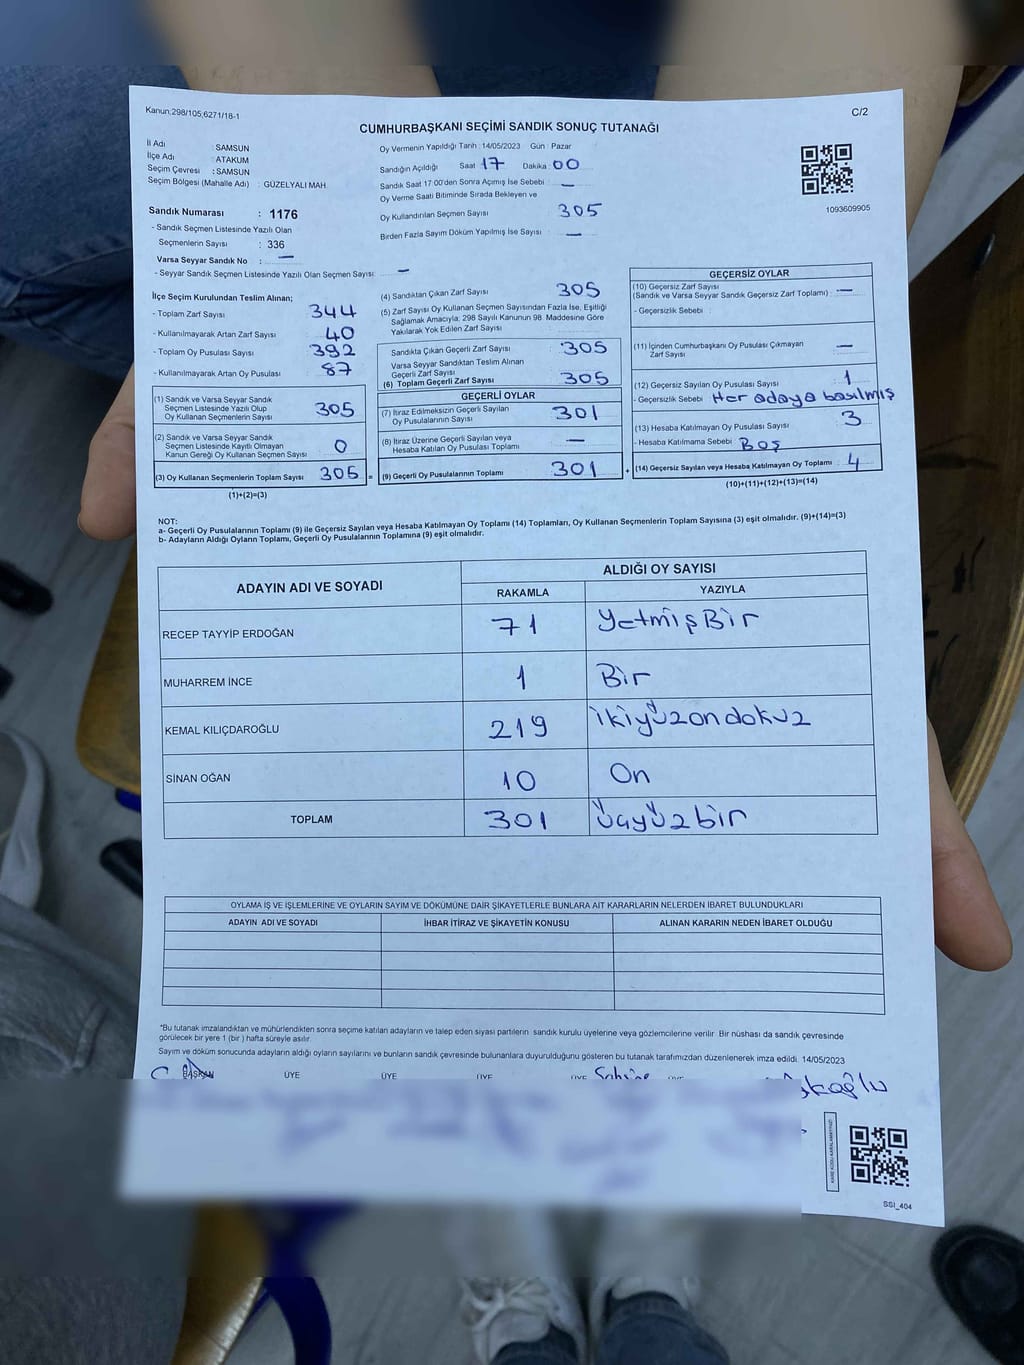 Kanun;298/105,6271/18-1
C/2
CUMHURBAŞKANI SEÇİMİ SANDIK SONUÇ TUTANAĞI
İl Adı : SAMSUN
İlçe Adı : ATAKUM
Seçim Çevresi : SAMSUN
Seçim Bölgesi (Mahalle Adı) : GÜZELYALI MAH.
Sandık Numarası : 1176
- Sandık Seçmen Listesinde Yazılı Olan
Seçmenlerin Sayısı : 336
Varsa Seyyar Sandık No : —
- Seyyar Sandık Seçmen Listesinde Yazılı Olan Seçmen Sayısı: —
Oy Vermenin Yapıldığı Tarih :14/05/2023 Gün : Pazar
Sandığın Açıldığı Saat 17 Dakika : 00
Sandık Saat 17:00'den Sonra Açımış İse Sebebi : —
Oy Verme Saati Bitiminde Sırada Bekleyen ve
Oy Kullandırılan Seçmen Sayısı : 305
Birden Fazla Sayım Döküm Yapılmış İse Sayısı : —
1093609905
İlçe Seçim Kurulundan Teslim Alınan;
- Toplam Zarf Sayısı : 344
- Kullanılmayarak Artan Zarf Sayısı : 40
- Toplam Oy Pusulası Sayısı : 392
- Kullanılmayarak Artan Oy Pusulası : 87
(1) Sandık ve Varsa Seyyar Sandık
Seçmen Listesinde Yazılı Olup
Oy Kullanan Seçmenlerin Sayısı : 305
(2) Sandık ve Varsa Seyyar Sandık
Seçmen Listesinde Kayıtlı Olmayan
Kanun Gereği Oy Kullanan Seçmen Sayısı : 0
(3) Oy Kullanan Seçmenlerin Toplam Sayısı : 305 =
(1)+(2)=(3)
(4) Sandıktan Çıkan Zarf Sayısı : 305
(5) Zarf Sayısı Oy Kullanan Seçmen Sayısından Fazla İse, Eşitliği
Sağlamak Amacıyla; 298 Sayılı Kanunun 98. Maddesine Göre
Yakılarak Yok Edilen Zarf Sayısı :
Sandıkta Çıkan Geçerli Zarf Sayısı : 305
Varsa Seyyar Sandıktan Teslim Alınan
Geçerli Zarf Sayısı :
(6) Toplam Geçerli Zarf Sayısı : 305
GEÇERLİ OYLAR
(7) İtiraz Edilmeksizin Geçerli Sayılan
Oy Pusulalarının Sayısı : 301
(8) İtiraz Üzerine Geçerli Sayılan veya
Hesaba Katılan Oy Pusulası Toplamı : —
(9) Geçerli Oy Pusulalarının Toplamı : 301 +
GEÇERSİZ OYLAR
(10) Geçersiz Zarf Sayısı
(Sandık ve Varsa Seyyar Sandık Geçersiz Zarf Toplamı) : —
- Geçersizlik Sebebi :
(11) İçinden Cumhurbaşkanı Oy Pusulası Çıkmayan
Zarf Sayısı : —
(12) Geçersiz Sayılan Oy Pusulası Sayısı : 1
- Geçersizlik Sebebi : Her adaya basılmış
(13) Hesaba Katılmayan Oy Pusulası Sayısı : 3
- Hesaba Katılmama Sebebi : Boş
(14) Geçersiz Sayılan veya Hesaba Katılmayan Oy Toplamı : 4
(10)+(11)+(12)+(13)=(14)
NOT:
a- Geçerli Oy Pusulalarının Toplamı (9) ile Geçersiz Sayılan veya Hesaba Katılmayan Oy Toplamı (14) Toplamları, Oy Kullanan Seçmenlerin Toplam Sayısına (3) eşit olmalıdır. (9)+(14)=(3)
b- Adayların Aldığı Oyların Toplamı, Geçerli Oy Pusulalarının Toplamına (9) eşit olmalıdır.
ADAYIN ADI VE SOYADI
ALDIĞI OY SAYISI
RAKAMLA YAZIYLA
RECEP TAYYİP ERDOĞAN 71 YetmişBir
MUHARREM İNCE 1 Bir
KEMAL KILIÇDAROĞLU 219 ikiyüzondokuz
SİNAN OĞAN 10 On
TOPLAM 301 Üçyüzbir
OYLAMA İŞ VE İŞLEMLERİNE VE OYLARIN SAYIM VE DÖKÜMÜNE DAİR ŞİKAYETLERLE BUNLARA AİT KARARLARIN NELERDEN İBARET BULUNDUKLARI
ADAYIN ADI VE SOYADI İHBAR İTİRAZ VE ŞİKAYETİN KONUSU ALINAN KARARIN NEDEN İBARET OLDUĞU
*Bu tutanak imzalandıktan ve mühürlendikten sonra seçime katılan adayların ve talep eden siyasi partilerin sandık kurulu üyelerine veya gözlemcilerine verilir. Bir nüshası da sandık çevresinde
görülecek bir yere 1 (bir ) hafta süreyle asılır.
Sayım ve döküm sonucunda adayların aldığı oyların sayılarını ve bunların sandık çevresinde bulunanlara duyurulduğunu gösteren bu tutanak tarafımızdan düzenlenerek imza edildi. 14/05/2023
BAŞKAN ÜYE ÜYE ÜYE
SSI_404